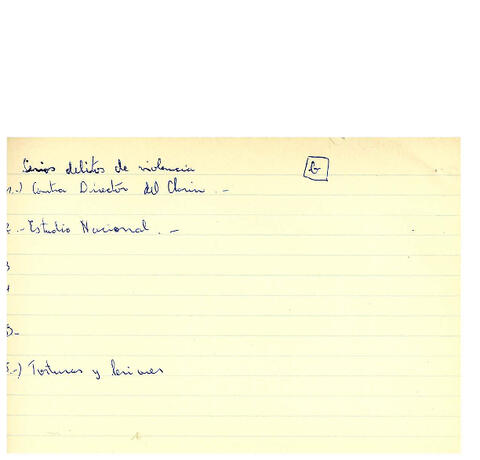 Serios delitos de violencia
G
1.-) Contra Director del Clarin. -
2.- Estadio Nacional. -
3
4
5.-) Torturas y lesiones